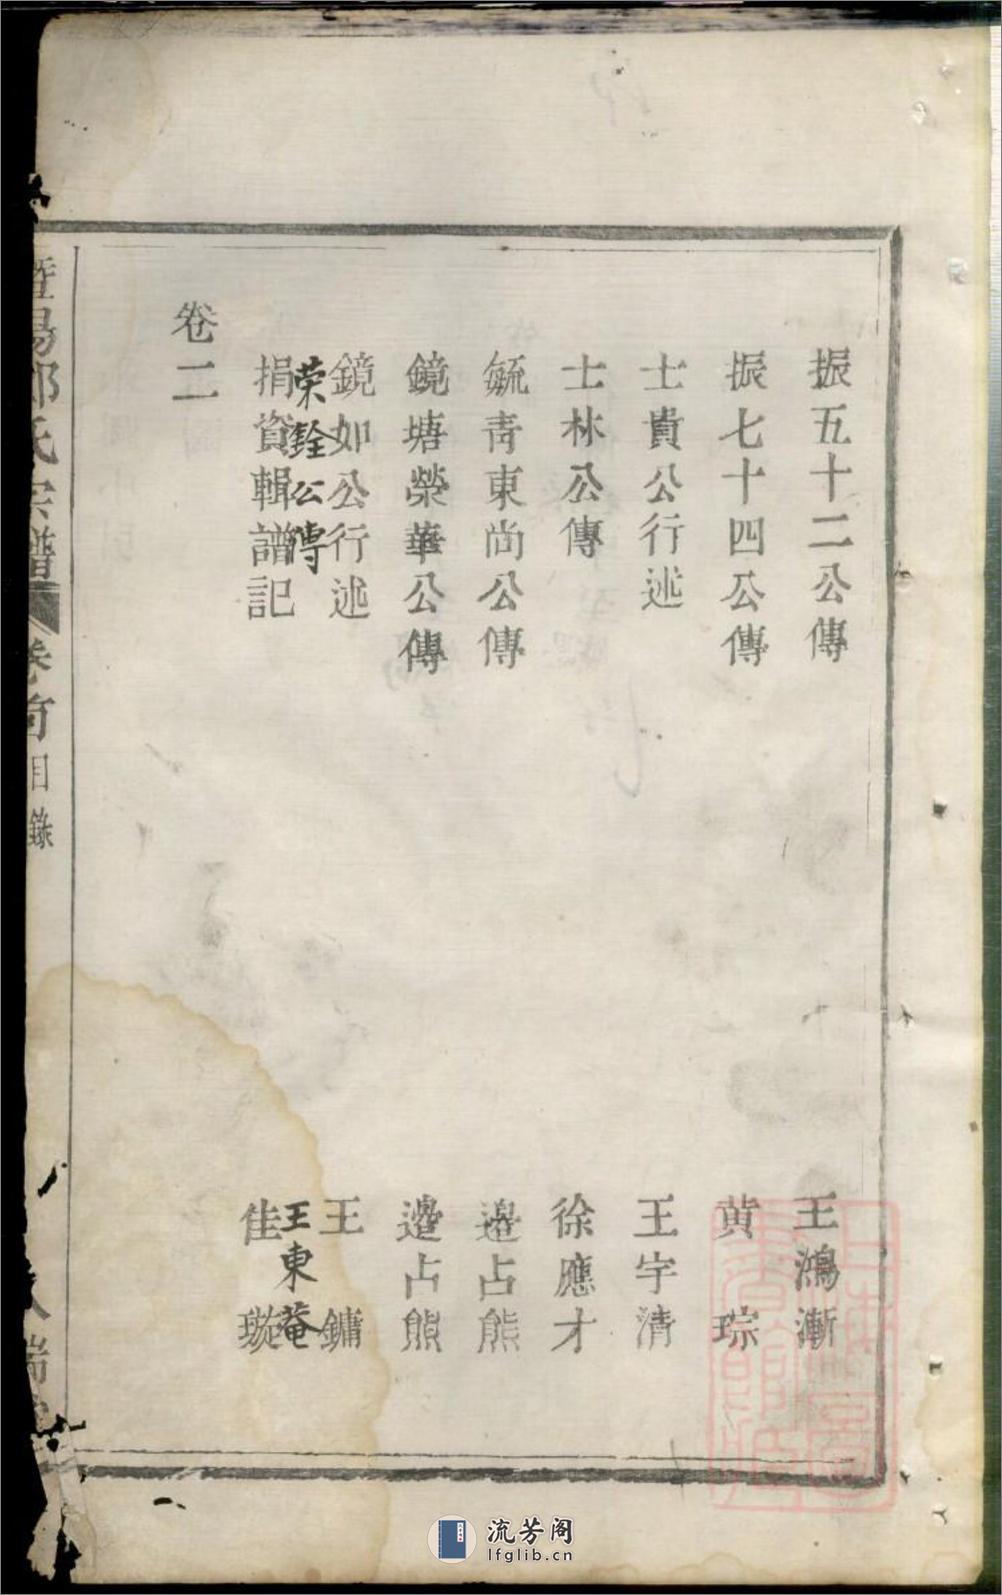 振五十二公傳 王鴻漸
振七十四公傳 黄琮
士貴公行述 王宇清
士林公傳 徐應才
毓青東尚公傳 邉占熊
鏡塘榮華公傳 邉占熊
鏡如公行述 王鏞
荣銓公傳 王東菴
捐資輯譜記 佳璇
卷二
暨陽郭氏宗譜 卷首 目錄
流芳阁
lfglib.cn